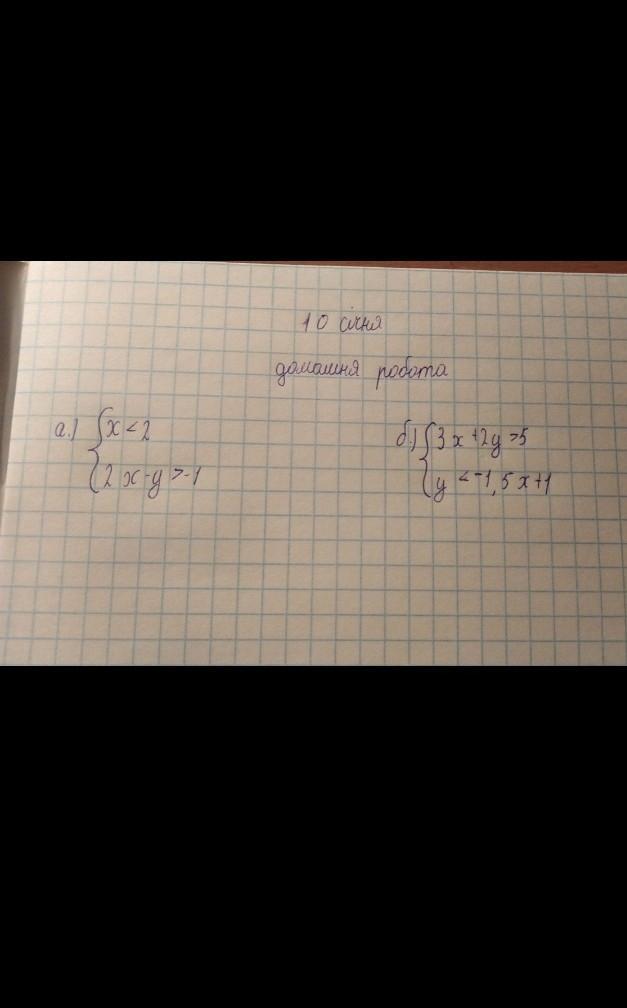 10 січня
домашня робота
а.) { x < 2
2x - y > -1
б.) { 3x + 2y > 5
y < -1,5x + 1